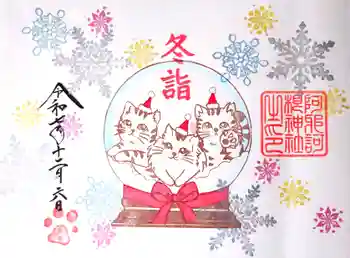 冬詣
阿邪訶
根神社
之印
令和七年十二月六日